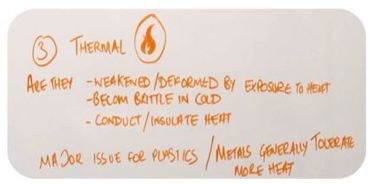 3 THERMAL
ARE THEY - WEAKENED/DEFORMED BY EXPOSURE TO HEAT
- BECOM BRITTLE IN COLD
- CONDUCT/INSULATE HEAT
MAJOR ISSUE FOR PLASTICS / METALS GENERALLY TOLERATE
MORE HEAT